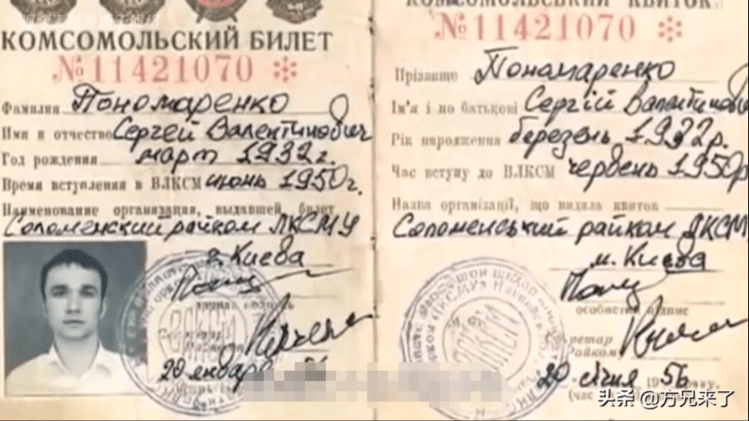 КОМСОМОЛЬСКИЙ БИЛЕТ
№11421070
Фамилия Пономаренко
Имя и отчество Сергей Валентинович
Год рождения март 1932 г.
Время вступления в ВЛКСМ июнь 1950 г.
Наименование организации, выдавшей билет
Соломенский райком ЛКСМУ
г. Киева
20 января 56
КОМСОМОЛЬСЬКИЙ КВИТОК
№11421070
Прізвище Пономаренко
Ім'я і по батькові Сергій Валентинович
Рік народження березень 1932 р.
Час вступу до ВЛКСМ червень 1950 р.
Назва організації, що видала квиток
Соломенський райком ЛКСМ
м. Києва
особистий підпис
20 січня 1956
头条 @方兄来了